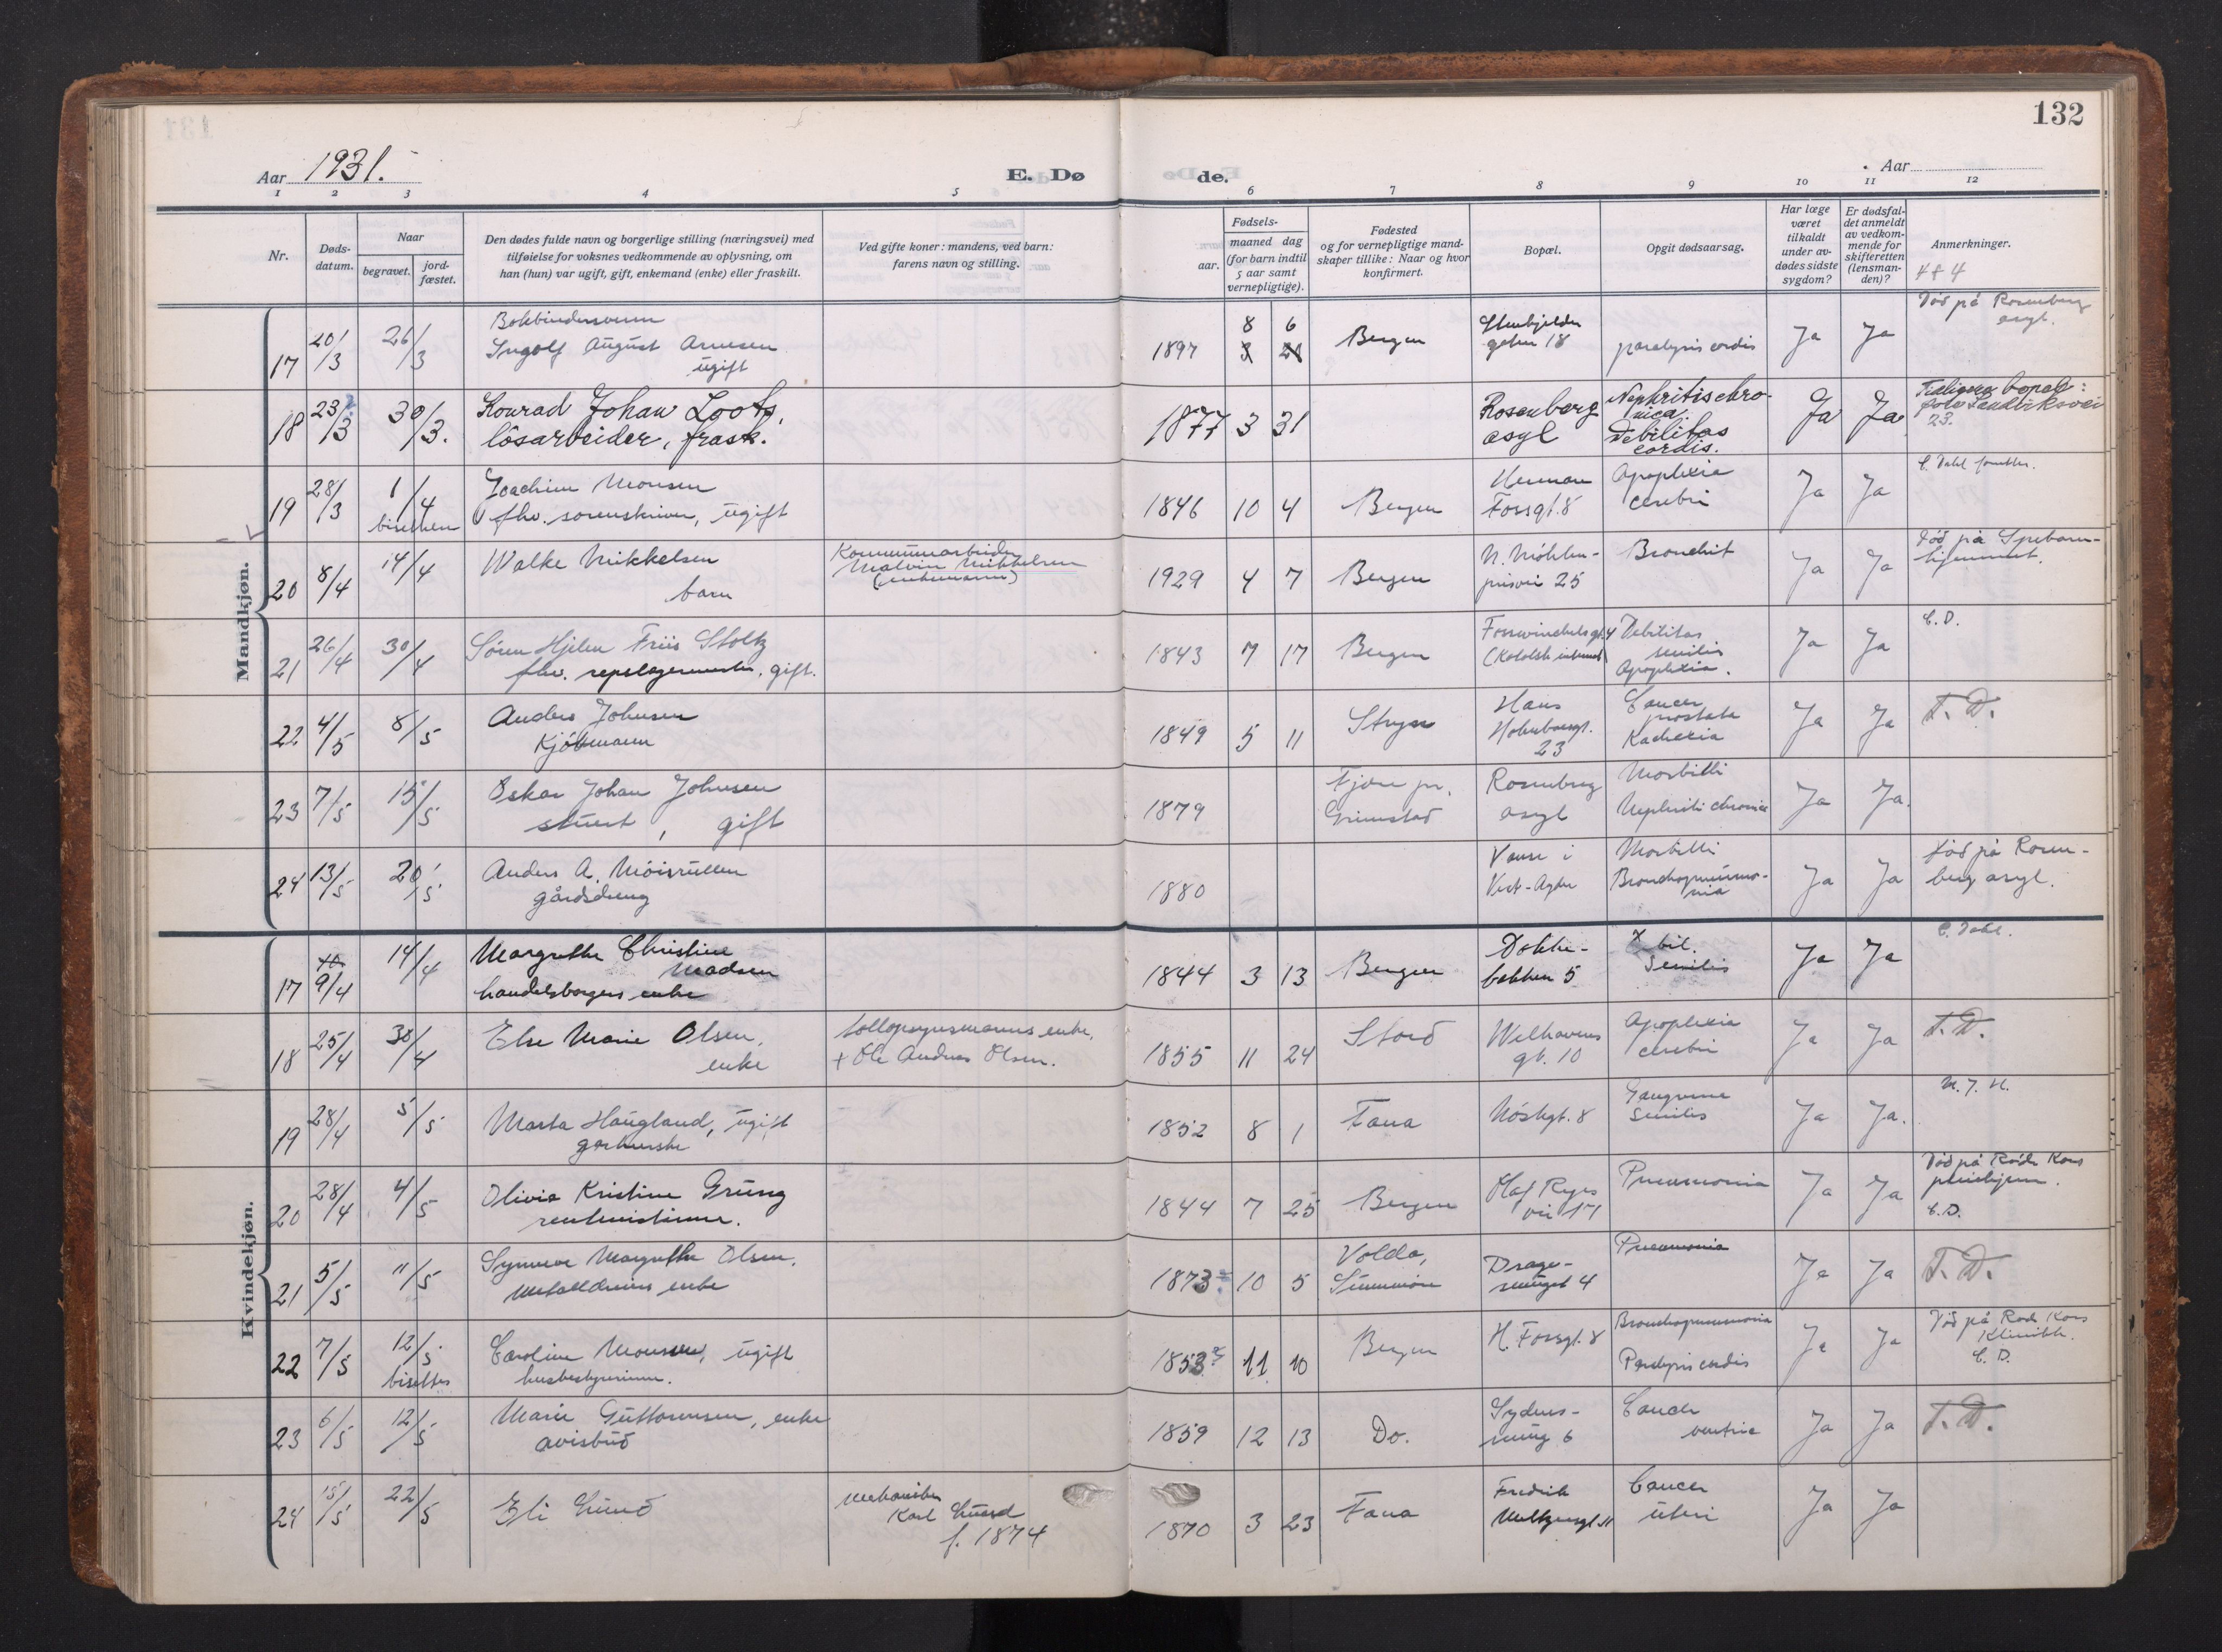 132
Aar 1931.
E. Dø
de.
Aar
1 2 3 4 5 6 7 8 9 10 11 12
Nr.
Døds-
datum.
Naar
begravet.
jord-
fæstet.
Den dødes fulde navn og borgerlige stilling (næringsvei) med
tilføielse for voksnes vedkommende av oplysning, om
han (hun) var ugift, gift, enkemand (enke) eller fraskilt.
Ved gifte koner: mandens, ved barn:
farens navn og stilling.
aar.
Fødsels-
maaned dag
(for barn indtil
5 aar samt
vernepligtige).
Fødested
og for vernepligtige mand-
skaper tillike: Naar og hvor
konfirmert.
Bopæl.
Opgit dødsaarsag.
Har læge
været
tilkaldt
under av-
dødes sidste
sygdom?
Er dødsfal-
det anmeldt
av vedkom-
mende for
skifteretten
(lensman-
den)?
Anmerkninger.
Mandkjøn.
17 20/3 26/3
Ingolf August Arnesen
ugift
1897 8 6
3 21
Bergen
gaten 18
paralysis cordis
Ja Ja
Død på Rosenberg
asyl.
18 23/3 30/3.
Konrad Johan Loots,
løsarbeider, frask.
1877 3 31
Rosenberg
asyl
Nephritis chro-
nica.
Debilitas
cordis.
Ja Ja
Tidligere bopæl:
23.
19 28/3 1/4
Joachim Monsen
fhv. sorenskriver, ugift
1846 10 4
Bergen
Herman
Fossgt. 8
Apoplexia
cerebri
Ja Ja
C. Dahl
20 8/4 14/4
Walke Mikkelsen
barn
Kommunearbeider
Malvin Mikkelsen
(enkemann)
1929 4 7
Bergen
N. Møhlen-
prisvei 25
Bronchit
Ja Ja
Død på Spebarn-
hjemmet.
21 26/4 30/4
Søren Hjelm Friis Stoltz
fhv. repslagermester, gift.
1843 7 17
Bergen
Fosswinckelsgt. 4
Debilitas
senilis
Apoplexia.
Ja Ja
C. D.
22 4/5 8/5
Anders Johnsen
Kjøbmann
1849 5 11
Stryn
Hans
Holmboesgt.
23
Cancer
prostata
Kachexia
Ja Ja
T. D.
23 7/5 15/5
Oskar Johan Johnsen
stuert, gift
1879
Fjære pr.
Grimstad
Rosenberg
asyl
Morbilli
Nephriti chronica
Ja Ja.
24 13/5 20/5
Anders A. Møisrullen
gårdsdreng
1880
Vanse i
Vest-Agder
Morbilli
Bronchopneumo-
nia
Ja Ja
Død på Rosen-
berg asyl.
Kvindekjøn.
17 9/4 14/4
Margrethe Christine
Madsen
handelsborgers enke
1844 3 13
Bergen
Dokke-
bakken 5
senilis
Ja Ja
C. Dahl.
18 25/4 30/4
Else Marie Olsen,
enke
Tollopsynsmanns enke,
+ Ole Andreas Olsen.
1855 11 24
Stord
Welhavens
gt. 10
Apoplexia
cerebri
Ja Ja
T. D.
19 28/4 5/5
Marta Haugland, ugift
1852 8 1
Fana
Nøstegt. 8
Gangrene
senilis
Ja Ja.
20 28/4 4/5
Olivia Kristine Grung
rentenistinne.
1844 7 25
Bergen
Olaf Ryes
vei
Pneumonia
Ja Ja
Død på Røde Kors
pleiehjem.
C. D.
21 5/5 11/5
Synneve Margrethe Olsen,
enke
1873 10 5
Volda,
Sunnmøre
Drage-
smuget 4
Pneumonia
Ja Ja
T. D.
22 7/5 12/5
bisettes
Caroline Monsen, ugift
husbestyrerinne.
1853 11 10
Bergen
H. Fossgt. 8
Bronchopneumonia
Paralysis cordis
Ja Ja
Død på Røde Kors
Klinikk.
C. D.
23 6/5 12/5
Marie Guttormsen, enke
avisbud
1859 12 13
Do.
Sydnes-
smug 6
Cancer
ventric
Ja Ja
T. D.
24 15/5 22/5
Eli Lund
mekaniker
Karl Lund
f. 1874
1870 3 23
Fana
Fredrik
Meltzersgt. 11
Cancer
uteri
Ja Ja